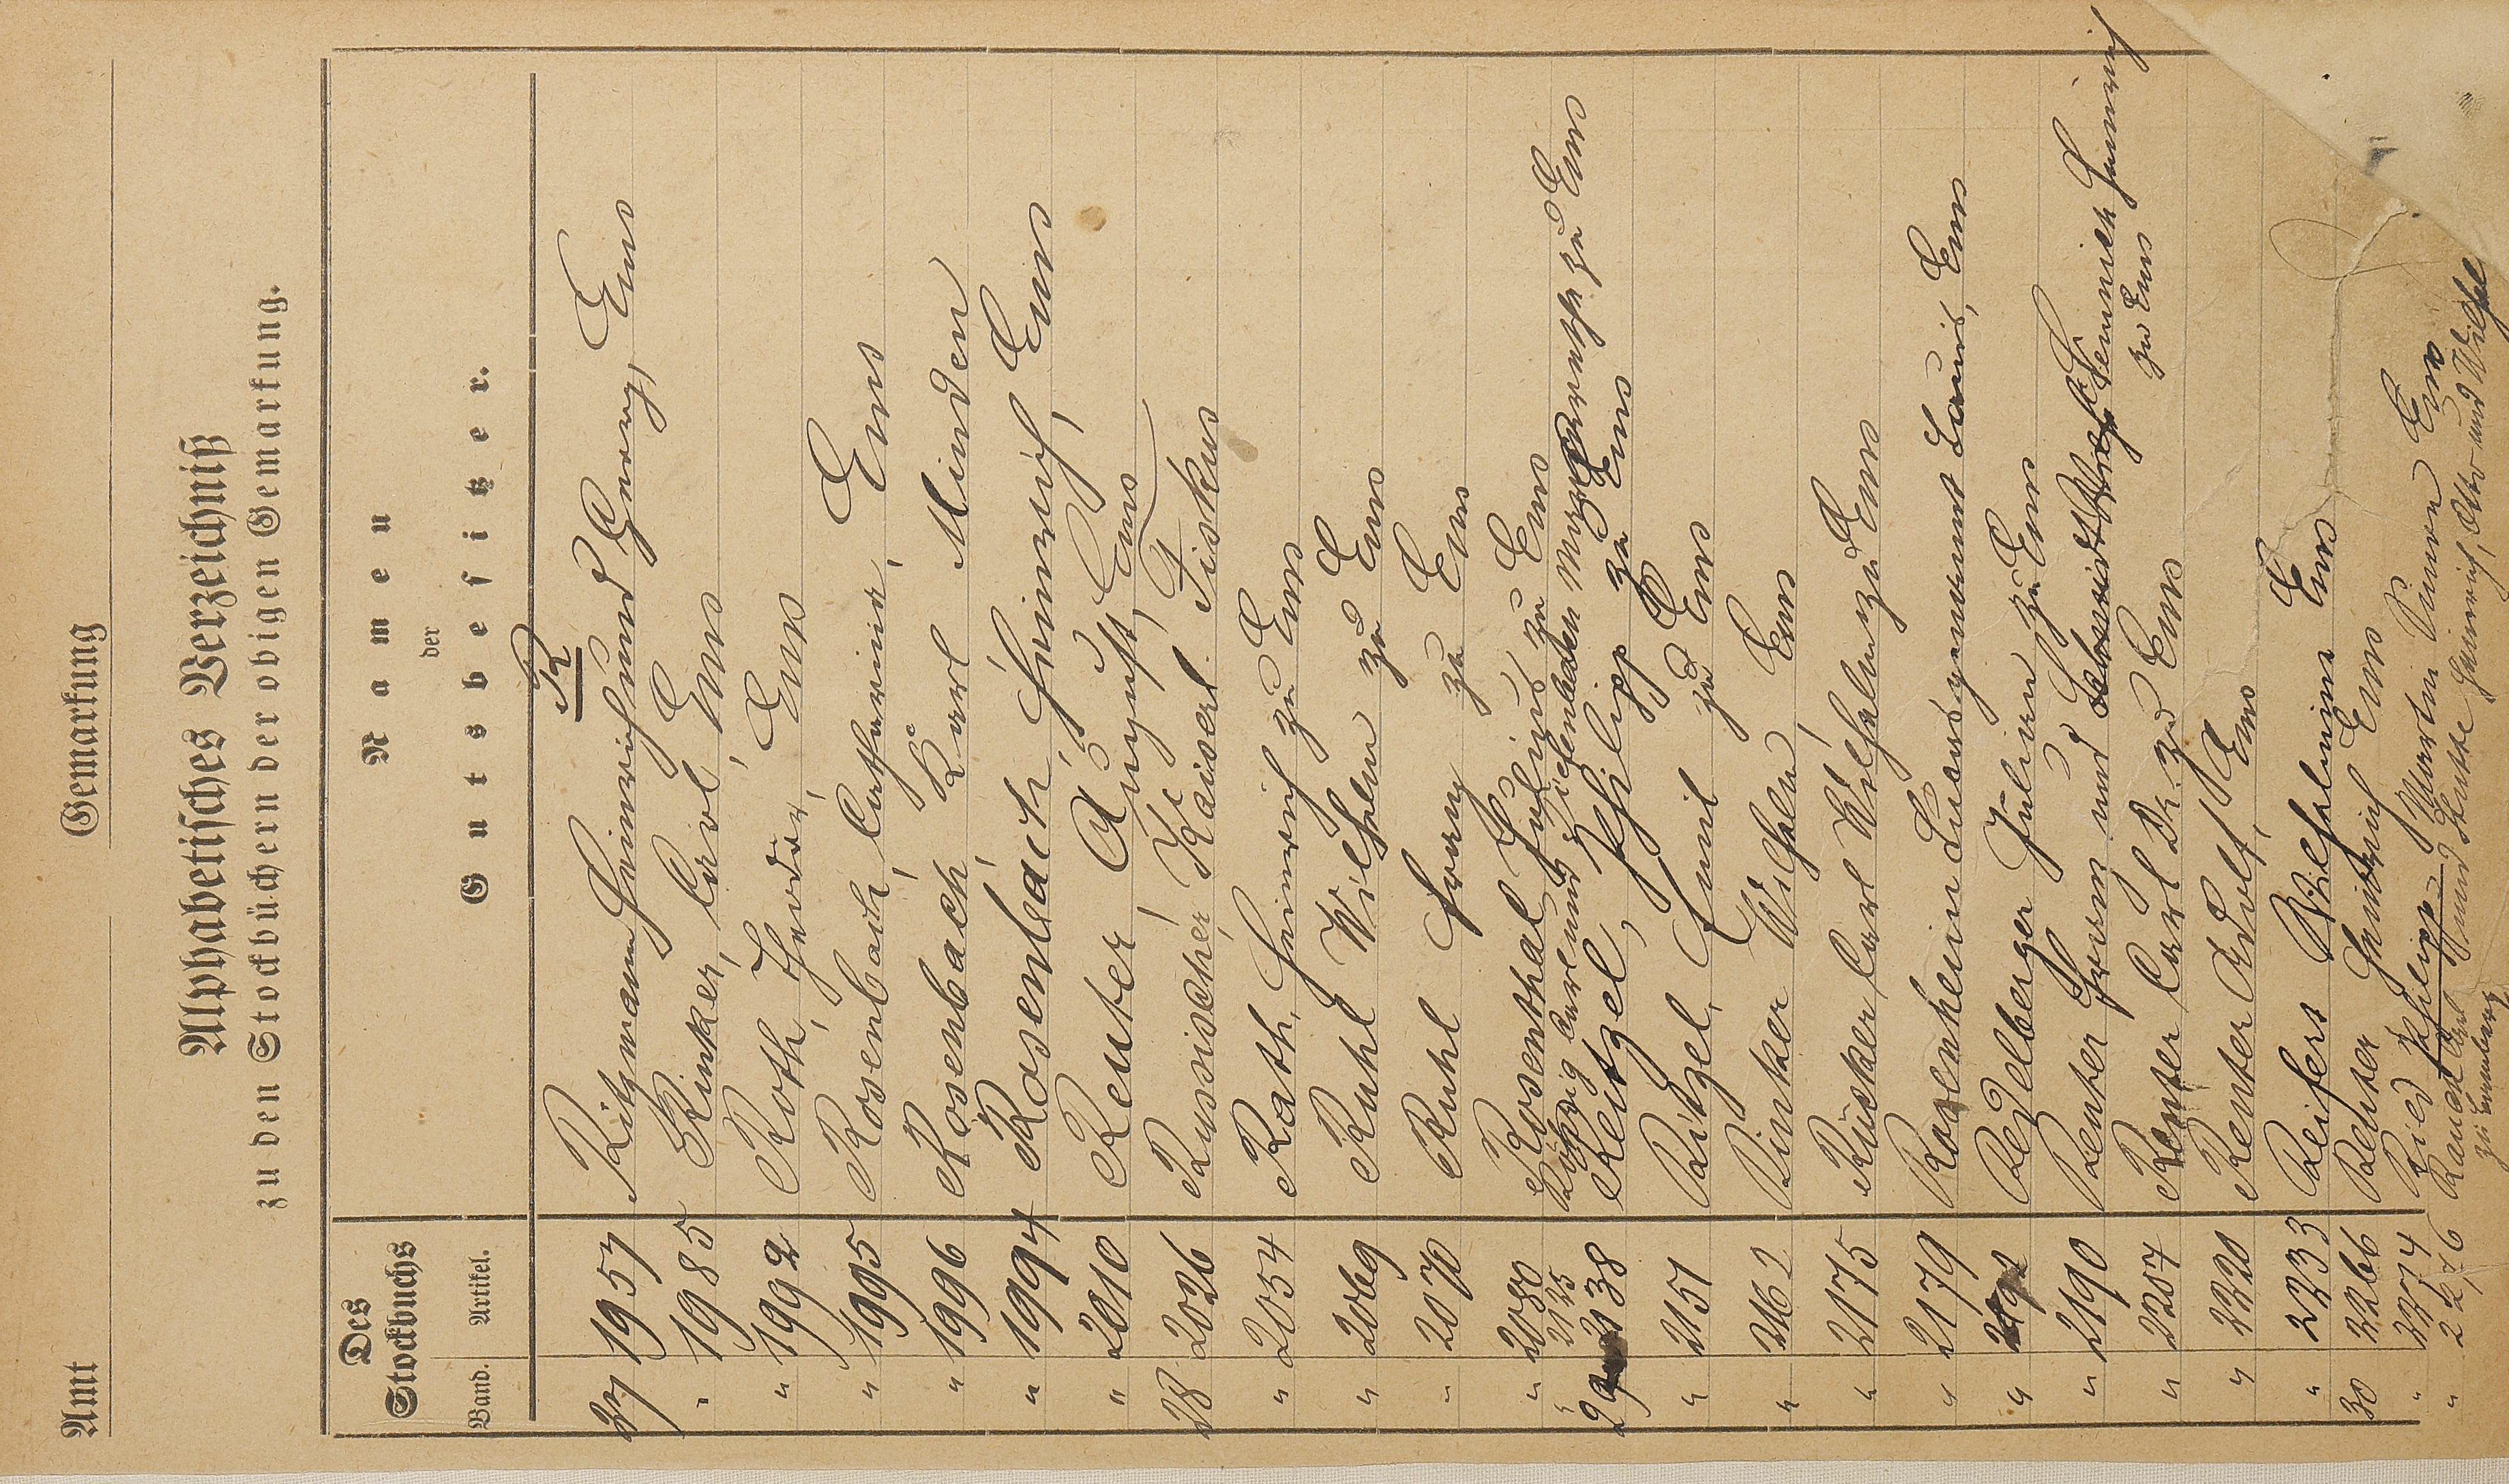 Amt Gemarkung
Alphabetisches Verzeichniß
zu den Stockbüchern der obigen Gemarkung.
Des Stockbuchs
Namen
der
Gutsbesitzer.
Band. Artikel.
R
27 1957 Ritzmann Heinrich und Georg, Ems
" 1985 Rinker, Carl, Ems
" 1992 Roth, Theodor, Ems
" 1995 Rosenbach, Catharina, Ems
" 1996 Rosenbach, Karl Minden
" 1994 Rosenbach, Heinrich, Ems
" 2010 Reuter, August, Ems
28 2026 Russischer, Kaiserl. Fiskus
" 2054 Rath, Heinrich zu Ems
" 2069 Ruhl Wilhelm zu Ems
" 2070 Ruhl Franz zu Ems
" 2080 Rosenthal Julius zu Ems
" 2125 Carl und zu Ems
29 2138 Reitzel, Philipp zu Ems
" 2151 Ritzel, Emil zu Ems
" 2162 Rinker Wilhelm, Ems
" 2175 Rücker Carl Wilhelm zu Ems
" 2179 Rosenheim Lucas genannt Louis, Ems
" Redelberger Julius zu Ems
" 2190 Reuter Franz und Heinrich
zu Ems
" 2207 Reuter Carl Dr. zu Ems
" 2220 Reuter Adolf, Ems
" 2233 Reifert Wilhelmine Ems
30 2266 Reuter Heinrich Ems
" 2274 Ried Philipp Martin Ems
" 2276 Rauch Carl und Heinrich, Otto und Wilhel
zu